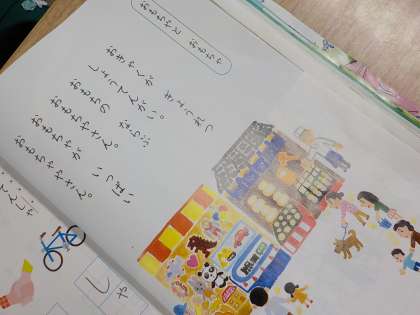 おもちやと おもちゃ
おきゃくが ぎょうれつ
しょうてんがい。
おもちの ならぶ
おもちやさん。
おもちゃが いっぱい
おもちゃやさん。
しゃ